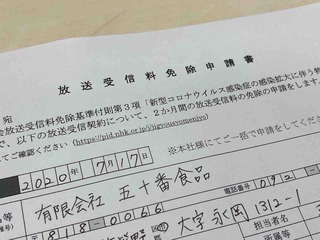 放送受信料免除申請書
宛
放送受信料免除基準付則第3項「新型コロナウイルス感染症の感染拡大に伴う特
で、以下の放送受信契約について、2か月間の放送受信料の免除の申請をします。
てご確認ください (https://pid.nhk.or.jp/jigyousyomenjyo)
※本社様にてご一括で申請をしてくだ
2020年7月17日
等 有限会社 五十番食品
電話番号 092-
818-0066
大字永岡1312-1
担当者名
所属等